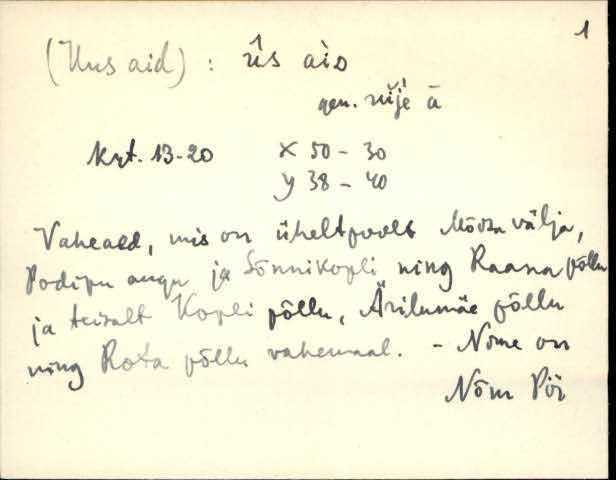 1
(Uus aid) : ûs aiᴅ
gen. ä
Krt. 13-20 X 50 - 30
y 38 - 40
Vaheaed, mis on üheltpoolt Mõisa välja,
Podipu augu ja Sõnnikopli ning Raana põllu
ja teisalt Kopli põllu, Ärilumäe põllu
ning Rota põllu vahemaal. - Nime on
Nõm Pöi